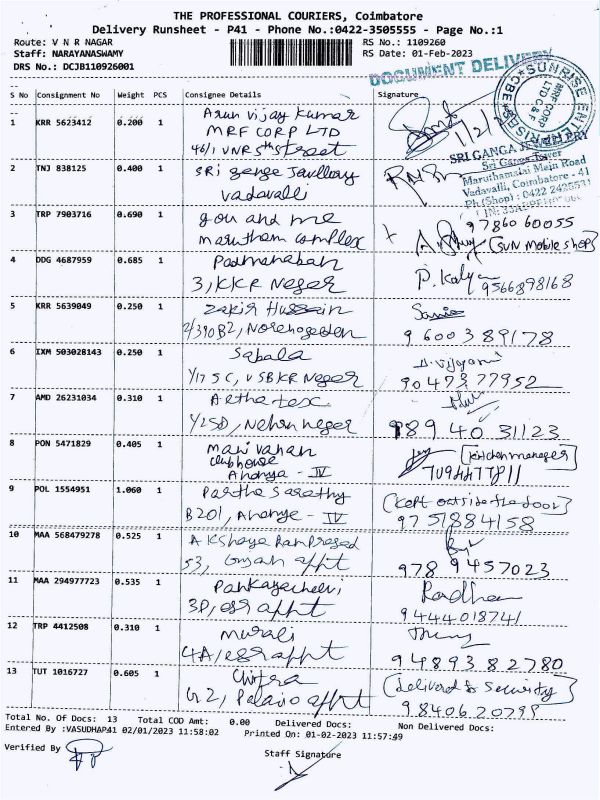 THE PROFESSIONAL COURIERS, Coimbatore
Delivery Runsheet - P41 - Phone No.:0422-3505555 - Page No.:1
Route: V N R NAGAR
RS No.: 1109260
Staff: NARAYANASWAMY
RS Date: 01-Feb-2023
DRS No.: DCJB110926001
DOCUMENT DELIVERY
S No Consignment No Weight PCS Consignee Details Signature
SUNRISE ENTERPRISES
MRF CORP
LTD C& F
CBE
1 KRR 5623412 0.200 1 Arun vijay kumar
MRF CORP LTD
46/1 VNR 5th street
1/2/2
SRI GANGA JEWELLERY
Sri Ganga Tower
Maruthamalai Main Road
Vadavalli, Coimbatore - 41
Ph (Shop) : 0422 2425531
2 TNJ 838125 0.400 1 SRi genge Jewllery
vadavalli
3 TRP 7903716 0.690 1 you and me
marutham complex
97860 60055
(SUN mobile shop)
4 DDG 4687959 0.685 1 Padmanaban
3, KKR Neger
P. Kalya
9566898168
5 KRR 5639049 0.250 1 Zakir Hussain
2/390B2,
9600389178
6 IXM 503028143 0.250 1 Sabala
1/17 5 C, V SBKR Neger
9047377952
7 AMD 26231034 0.310 1
1/25D, Nehru neger
989 40 31123
8 PON 5471829 0.405 1 manivahan
clubhouse
Ananya - IV
(kitchen manager)
9 POL 1554951 1.060 1 Partha Sarathy
B201, Ananye - IV
(kept outside the door)
9751884158
10 MAA 568479278 0.525 1 Akshaya Ram Prasad
53, appt
978 9457023
11 MAA 294977723 0.535 1 Pankayachelvi
3D, ess appt
Radha
9444018741
12 TRP 4412508 0.310 1 murali
4A/ess appt
94893 82780
13 TUT 1016727 0.605 1 Chitra
G2, Palacio appt
(delivered to security)
9840620799
Total No. Of Docs: 13 Total COD Amt: 0.00 Delivered Docs: Non Delivered Docs:
Entered By :VASUDHAP41 02/01/2023 11:58:02 Printed On: 01-02-2023 11:57:49
Verified By
Staff Signature